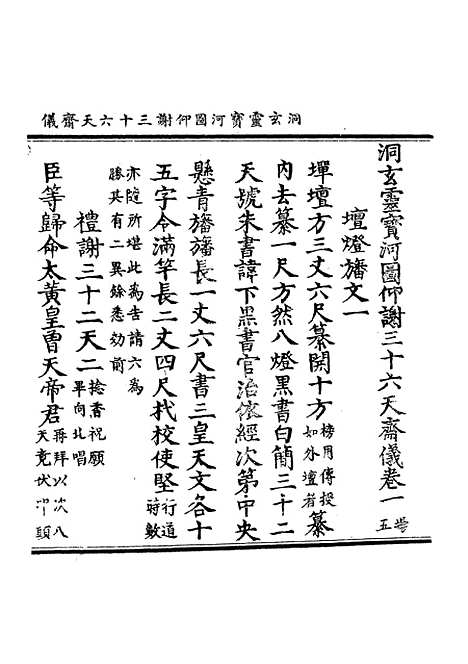 洞玄靈寳河圖仰謝三十六天齋儀
洞玄靈寳河圖仰謝三十六天齋儀卷一
五
壇燈旛文一
墠壇方三丈六尺纂開十方榜用傳授如外壇者纂
内去纂一尺方然八燈黒書白簡三十二
天號朱書諱下黒書官治依經次第中央
懸青旛旛長一丈六尺書三皇天文各十
五字令滿竿長二丈四尺找校使堅行道時數
亦隨所堪此為吉請六為勝其有二異餘悉如前
禮謝三十二天二捻香祝願畢向北唱
臣等歸命太黄皇曾天帝君再拜以次八天竟伏叩頭